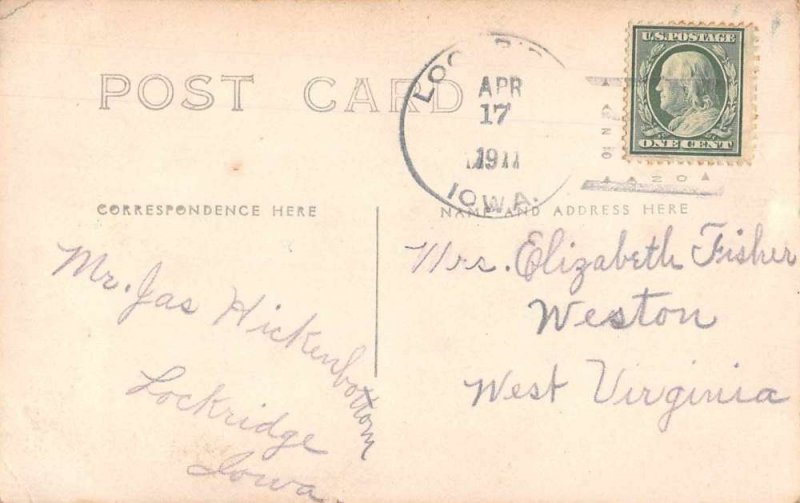 POST CARD
APR
17
1911
IOWA.
U.S. POSTAGE
ONE CENT
CORRESPONDENCE HERE
NAME AND ADDRESS HERE
Mr. Jas Hickenbottom
Lockridge
Iowa
Mrs. Elizabeth Fisher
Weston
West Virginia